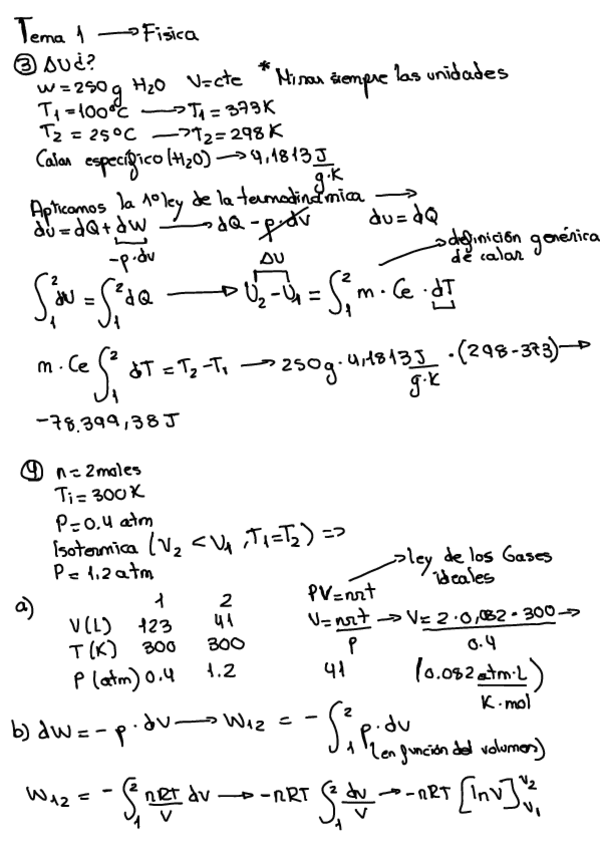 Tema 1 → Fisica
③ ΔU¿?
w = 250g H₂O V=cte * Mirar siempre las unidades
T₁ = 100°C → T₁ = 373K
T₂ = 25°C → T₂ = 298K
Calor específico (H₂O) → 4,1813 J/g·K
Aplicamos la 1º ley de la termodinámica →
dU = dQ + dW → dQ - p·dv dU = dQ
-p·dv
definición genérica de calor
∫₁² dU = ∫₁² dQ → ΔU U₂ - U₁ = ∫₁² m · Ce · dT
m · Ce ∫₁² dT = T₂ - T₁ → 250g · 4,1813 J/g·K · (298-373) →
-78.399,38 J
④ n = 2moles
Ti = 300K
P = 0.4 atm
Isotermica (V₂ < V₁, T₁=T₂) ⇒
P = 1.2 atm
ley de los Gases ideales
a) 1 2 PV=nrt
V(L) 123 41 V = nrt/P → V = 2·0,082·300/0.4 →
T(K) 300 300
P (atm) 0.4 1.2 41 (0.082 atm·L/K·mol)
b) dW = -p·dv → W₁₂ = -∫₁² p·dv
(en función del volumen)
W₁₂ = -∫₁² nRT/V dv → -nRT ∫₁² dv/V → -nRT [lnV]ᵥ₁ⱽ²